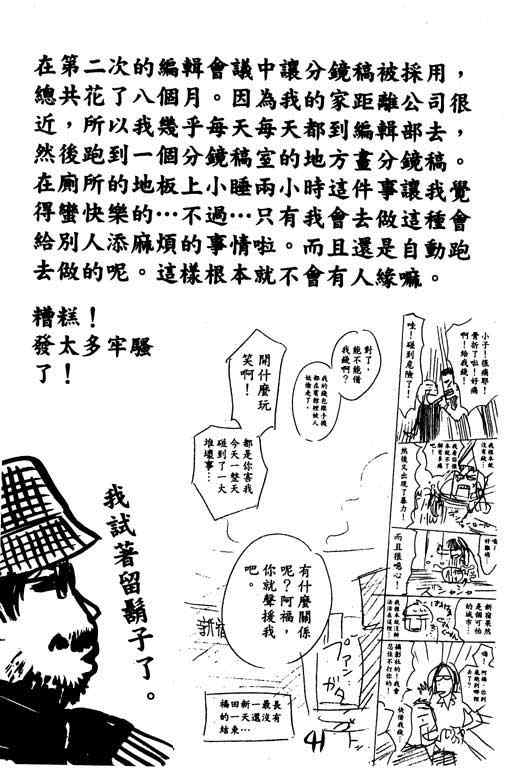 在第二次的編輯會議中讓分鏡稿被採用，
總共花了八個月。因為我的家距離公司很
近，所以我幾乎每天每天都到編輯部去，
然後跑到一個分鏡稿室的地方畫分鏡稿。
在廁所的地板上小睡兩小時這件事讓我覺
得蠻快樂的…不過…只有我會去做這種會
給別人添麻煩的事情啦。而且還是自動跑
去做的呢。這樣根本就不會有人緣嘛。
糟糕！
發太多牢騷
了！
我試著留鬍子了。
小子！很痛耶！
骨折了啦！好痛
啊！給我錢！
哇！碰到危險了！
然後又出現了暴力！
而且很噁心！
新宿果然
是個可怕
的城市…
對了，
能不能借
我錢啊？
我的錢包跟手機
都在賓館裡被人
給偷走了。
開什麼玩
笑啊！
都是你害我
今天一整天
碰到了一大
堆壞事…
有什麼關係
呢？阿福，
你就聲援我
吧。
ブァン
ガタ
ゴト
福田新一最長
的一天還沒有
結束…
41